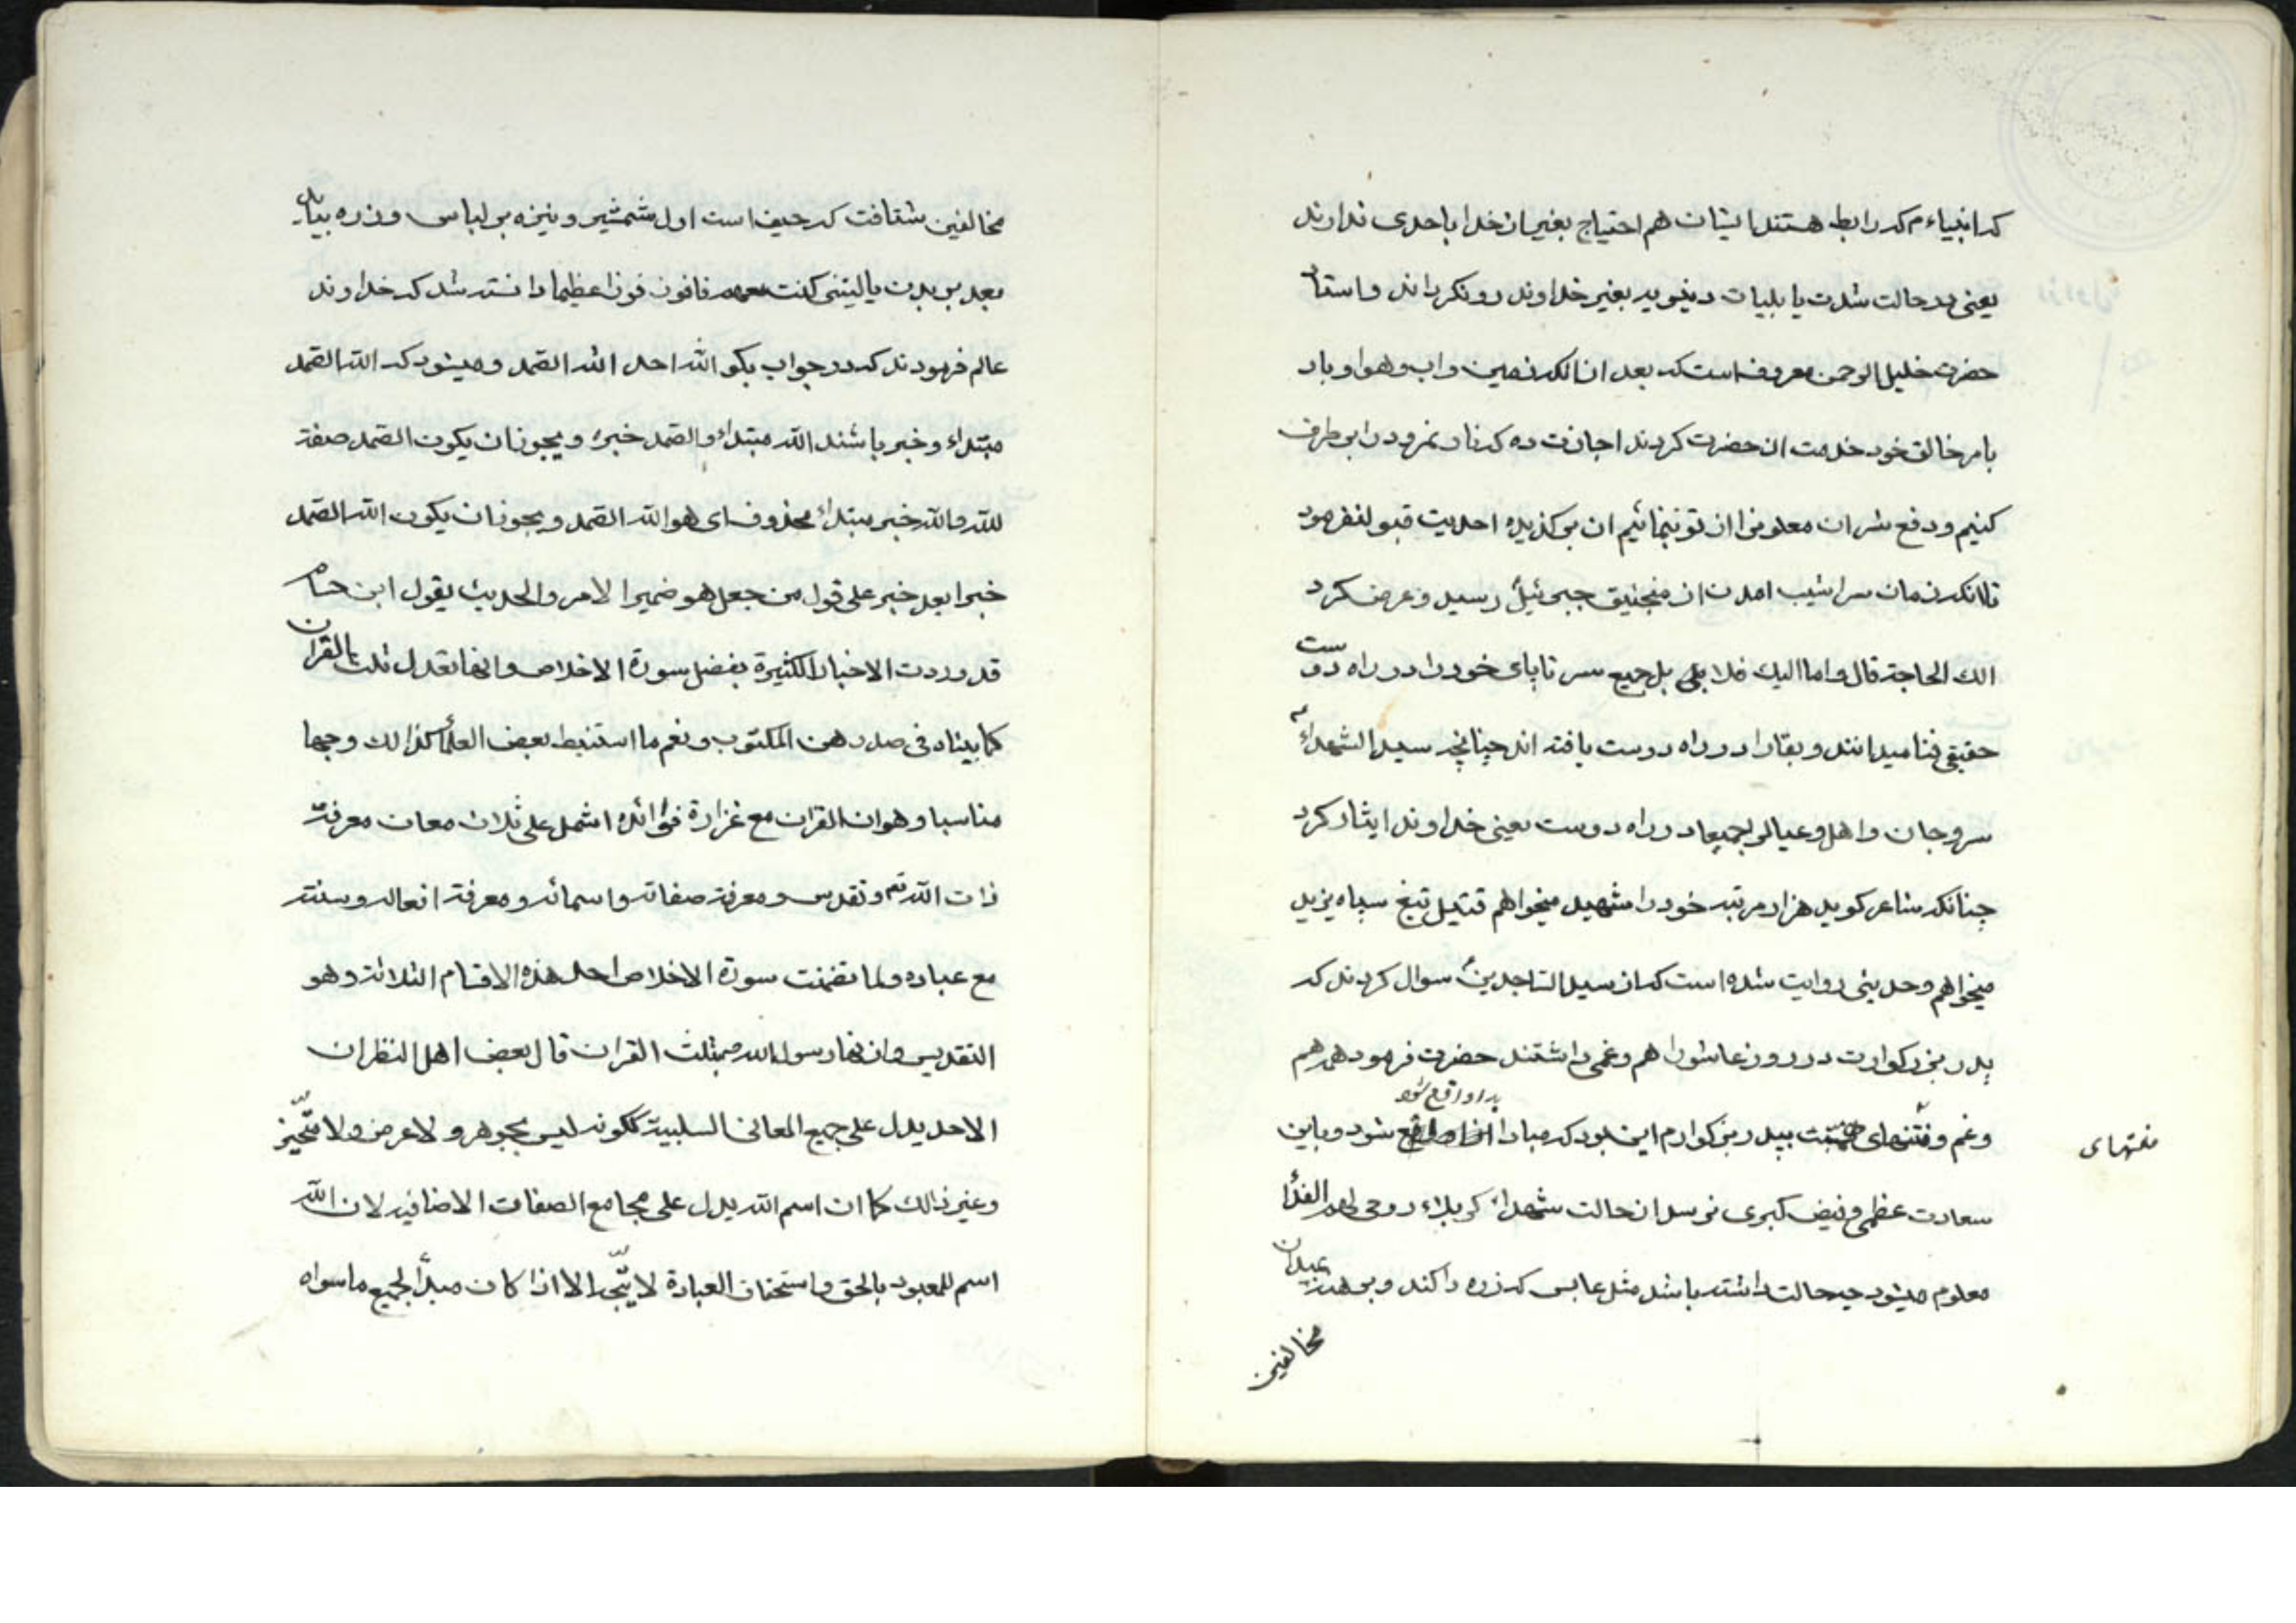 کہ انبیاء م کہ رابط هستند ایشان هم احتیاج بغیر از خدا باحدی ندارند
یعنی در حالت شدت یا بلیات دنیویه بغیر خداوند رو نکرداند و استاد
حضرت خلیل الرحمن معروف است که بعد از انکه زمین و اب و هوا و باد
بامر خالق خود خدمت ان حضرت کردند اجازت ده که نار نمرود را بر طرف
کنیم و دفع شر ان معلون را از تو بنمائیم ان بر کذیده احدیت قبول نفرمود
تا انکه زمان سراشیب امدن از منجنیق جبرئیل رسید و عرض کرد
الك الحاجة قال و اما الیك فلا بلی بل جمیع سر تا پای خود را در راه دوست
حقیقی فنا میدانند و بقا را در راه دوست یافته اند چنانچه سید الشهداء
سر و جان و اهل و عیال و بجمیعا در راه دوست یعنی خداوند ایثار کرد
چنانکه شاعر کوید هزار مرتبه خود را شهید میخواهم قتیل تیغ سپاه یزید
میخواهم و حدیثی روایت شده است که از سید الساجدین سوال کردند که
پدر بزرکوارت در روز عاشورا هم و غمی داشتند حضرت فرمود همه هم
بداء واقع شود
و غم و فتنهای مصیبت بپدر بزرکوارم این بود که مبادا واقع شود و باین
منتهای
سعادت عظمی و فیض کبری نرسد از حالت شهداء کربلاء روحی لهم الفداء
معلوم میشود چه حالت داشته باشد مثل عابس که زره را کند و برهنه بمیدان
مخالفین
مخالفین شتافت که حیف است اول شمشیر و نیزه بر لباس و زره بیاید
بعد بر بدن یا لیتنی کنت معهم فافوز فوزا عظیما دانسته شد که خداوند
عالم فرمودند که در جواب بکو الله احد الله الصمد و میشود که الله الصمد
مبتداء و خبر باشند الله مبتداء و الصمد خبره و یجوز ان یکون الصمد صفة
لله و الله خبر مبتداء محذوف ای هو الله الصمد و یجوز ان یکون الله الصمد
خبرا بعد خبر علی قول من جعل هو ضمیر الامر و الحدیث یقول ابن حسام
قد وردت الاخبار الکثیرة بفضل سورة الاخلاص و انها تعدل ثلث القران
کما بیناه فی صدر هذ المکتوب و نعم ما استنبط بعض العلماء کذالك وجها
مناسبا و هو ان القران مع غزارة فوائده اشمل علی ثلاث معان معرفة
ذات الله تع و تقدس و معرفة صفاته و اسمائه و معرفة افعاله و سنته
مع عباده و لما تضمنت سورة الاخلاص احد هذه الاقسام الثلاثة و هو
التقدیس وازنها رسول الله ص بثلث القران قال بعض اهل النظر ان
الاحد یدل علی جمیع المعانی السلبیة ککونه لیس بجوهر و لا عرض و لا متحیز
و غیر ذالك کما ان اسم الله یدل علی مجامع الصفات الاضافیه لان الله
اسم للمعبود بالحق و استحقاق العبادة لا یتجه الا اذا کان مبدأ لجمیع ما سواه